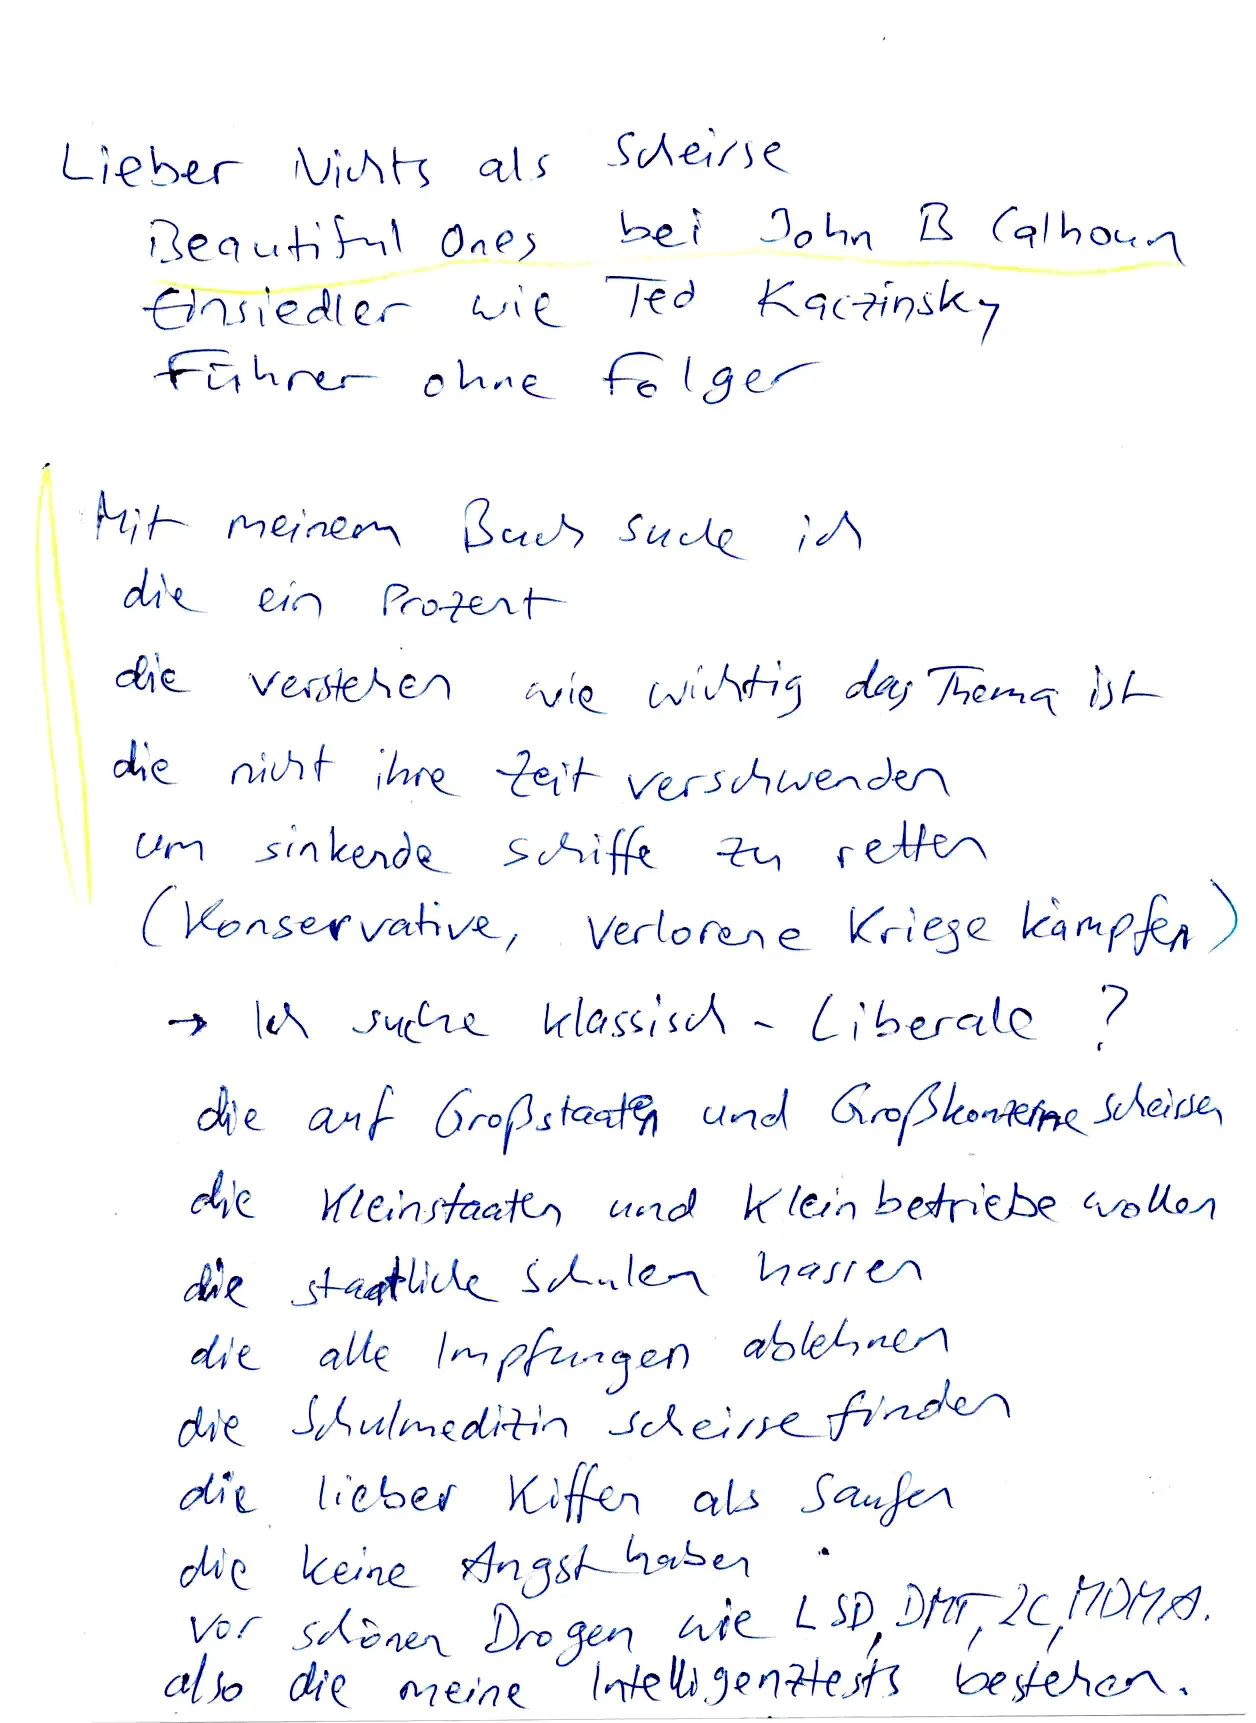 Lieber Nichts als Scheisse
Beautiful Ones bei John B Calhoun
Einsiedler wie Ted Kaczinsky
Führer ohne Folger
Mit meinem Buch suche ich
die ein Prozent
die verstehen wie wichtig das Thema ist
die nicht ihre Zeit verschwenden
um sinkende Schiffe zu retten
(Konservative, verlorene Kriege kämpfen)
→ Ich suche klassisch - Liberale ?
die auf Großstaaten und Großkonzerne scheissen
die Kleinstaaten und Kleinbetriebe wollen
die staatliche Schulen hassen
die alle Impfungen ablehnen
die Schulmedizin scheisse finden
die lieber Kiffen als Saufen
die keine Angst haben
vor schönen Drogen wie LSD, DMT, 2C, MDMA.
also die meine Intelligenztests bestehen.